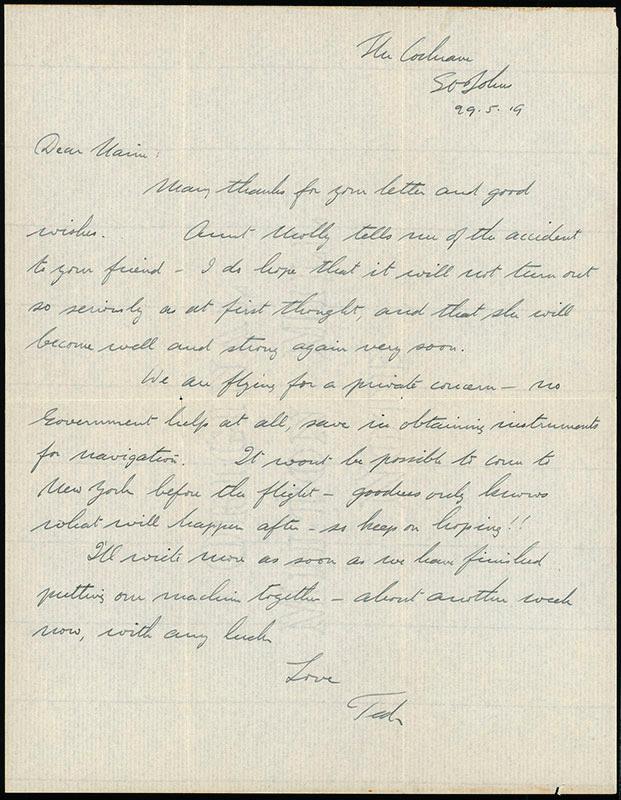 The Cochrane
St Johns
29.5.19
Dear
Many thanks for your letter and good
wishes. Aunt Molly tells me of the accident
to your friend – I do hope that it will not turn out
so seriously as at first thought, and that she will
become well and strong again very soon.
We are flying for a private concern – no
Government help at all, save in obtaining instruments
for navigation. It wont be possible to come to
New York before the flight – goodness only knows
what will happen after – so keep on hoping!!
I'll write more as soon as we have finished
putting our machine together – about another week
now, with any luck
Love
Ted